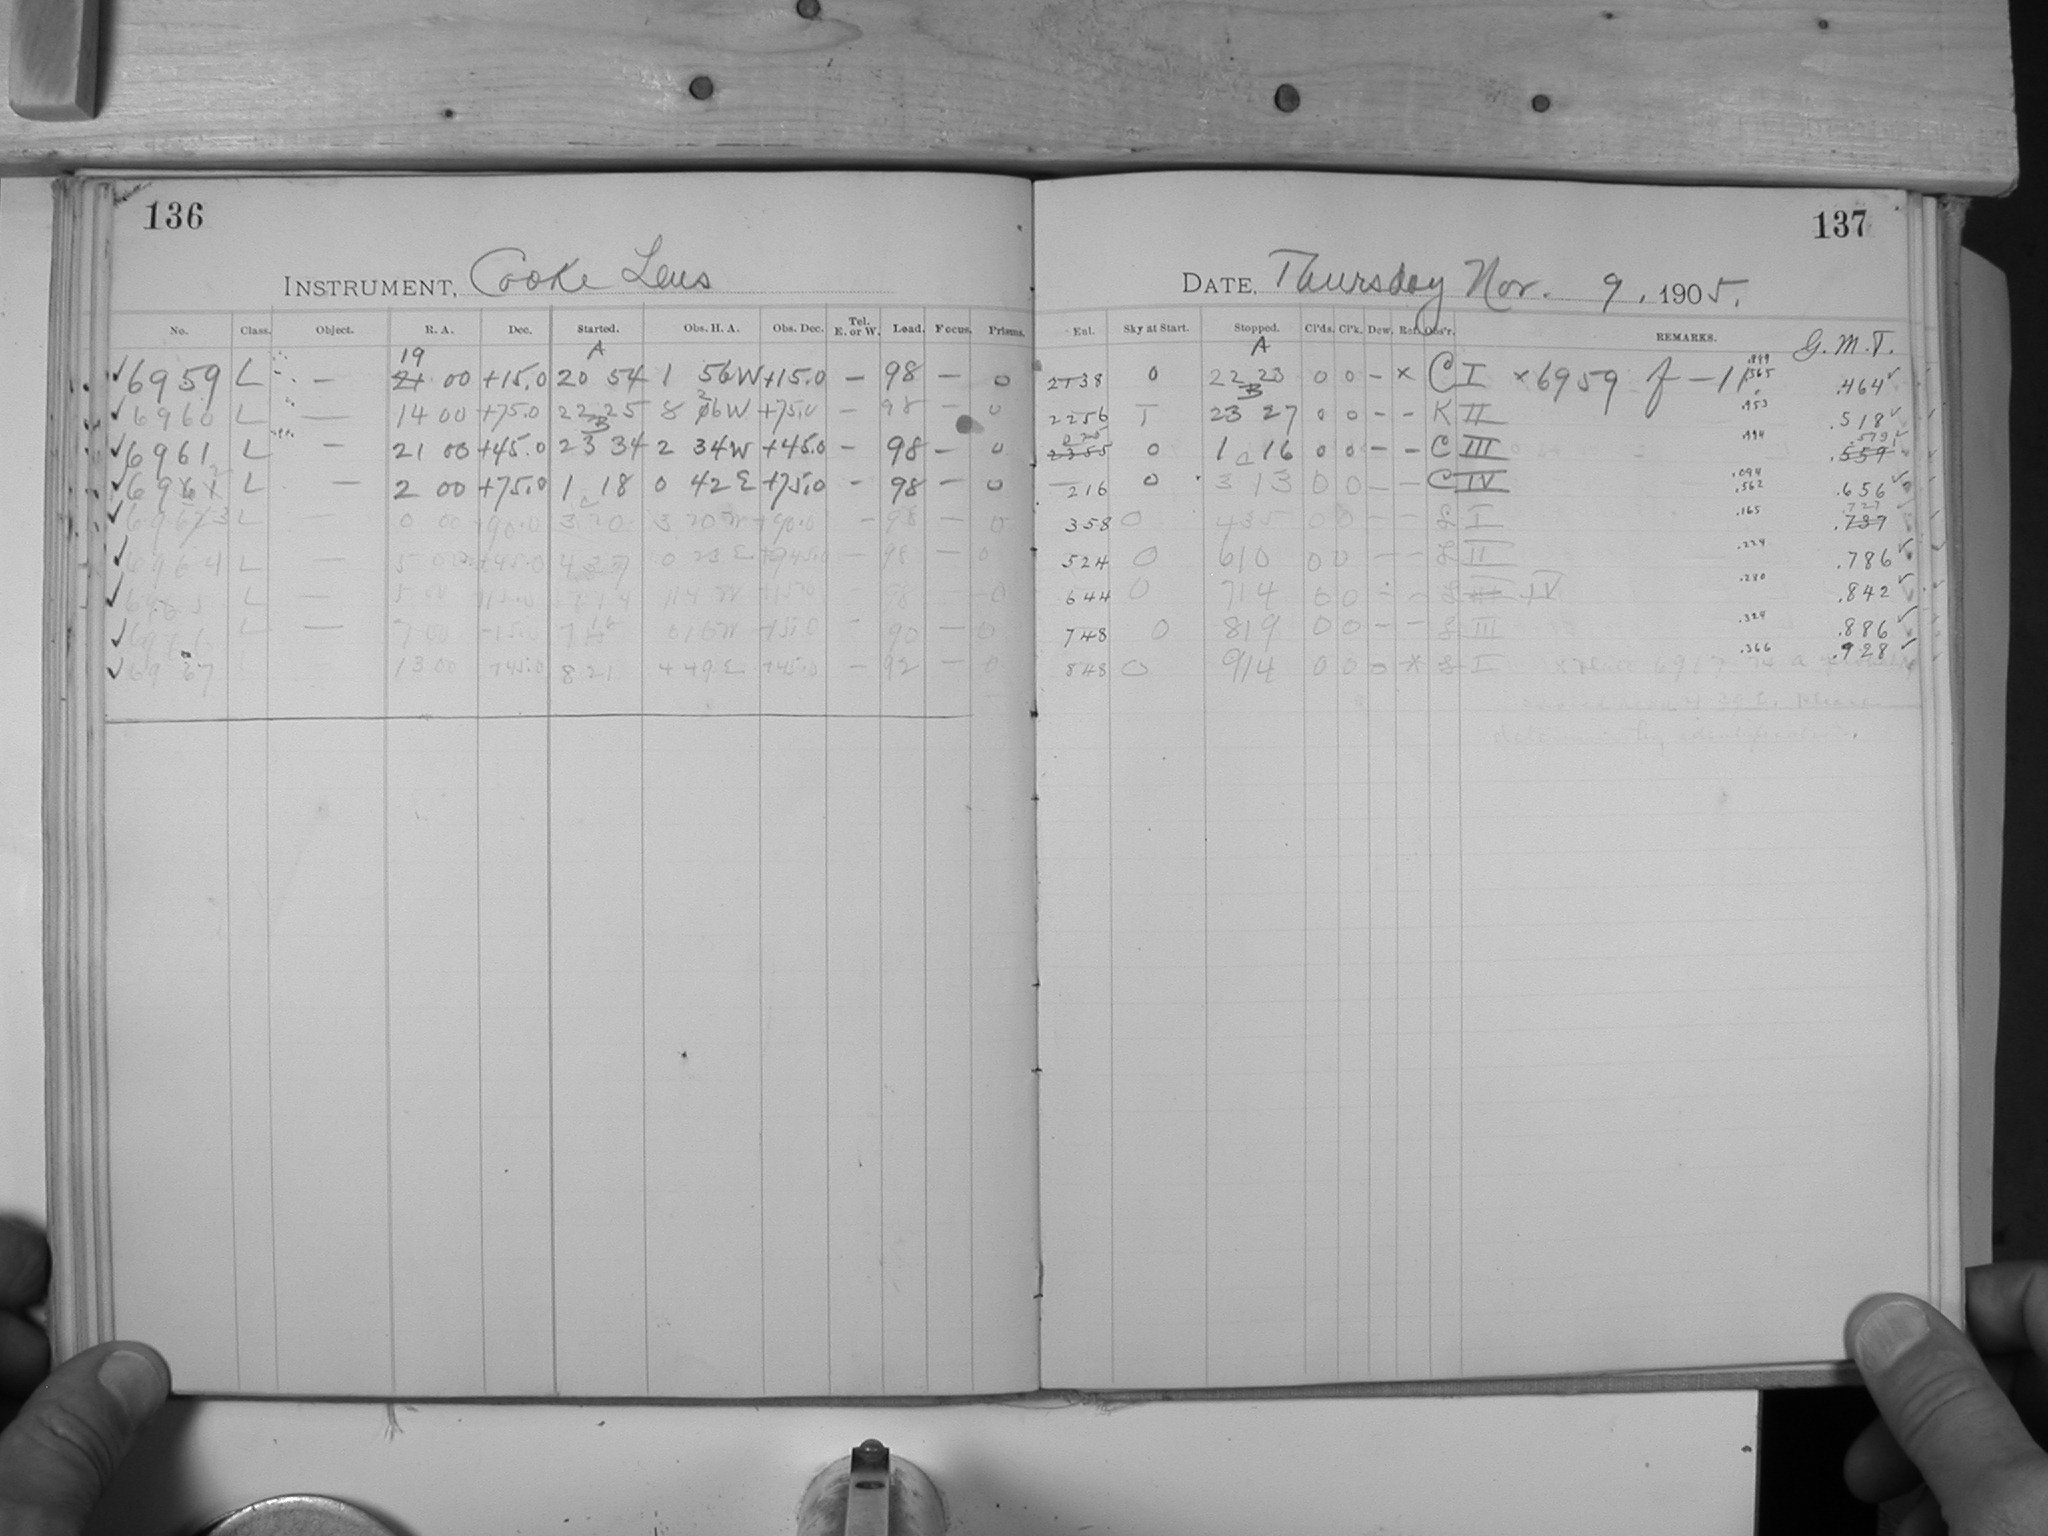 136
INSTRUMENT, Cooke Lens
No. Class. Object. R. A. Dec. Started. Obs. H. A. Obs. Dec. Tel. E. or W. Lead. Focus. Prisms.
19 A
6959 L — 21 00 +15.0 20 54 1 56W +15.0 — 98 — 0
6960 L — 14 00 +75.0 22 25 8 26W +75.0 — 98 — 0
B
6961 L — 21 00 +45.0 23 34 2 34W +45.0 — 98 — 0
6962 L — 2 00 +75.0 1 18 0 42E +75.0 — 98 — 0
6963 L 0 00 +90.0 3 20 3 20W +90.0 — 98 — 0
6964 L — 5 00 +45.0 4 39 0 23E +45.0 — 98 — 0
6965 L — 5 00 +15.0 1 14W +15.0 — 98 — 0
L — 7 00 +15.0 7 18 0 16W +15.0 — 90 — 0
6967 13 00 +45.0 8 21 4 49E +45.0 — 92 — 0
137
DATE, Thursday Nov. 9, 1905.
Enl. Sky at Start. Stopped. Cl'ds. Cl'k. Dew. Ref. Obs'r. REMARKS. G. M. T.
A
2138 0 22 23 0 0 — × C I ×6959 f — 11 .464
B
2256 T 23 27 0 0 — — K II .953 .518
025 .573
2355 0 1 16 0 0 — — C III .994 .559
216 0 3 13 0 0 — — C IV .094 .656
.562 .727
358 0 435 0 0 — — L I .165 .737
524 0 610 0 0 — — L II .224 .786
644 0 714 0 0 — — L III IV .280 .842
748 0 819 0 0 — — L III .324 .886
848 0 914 0 0 0 × L I .366 .928